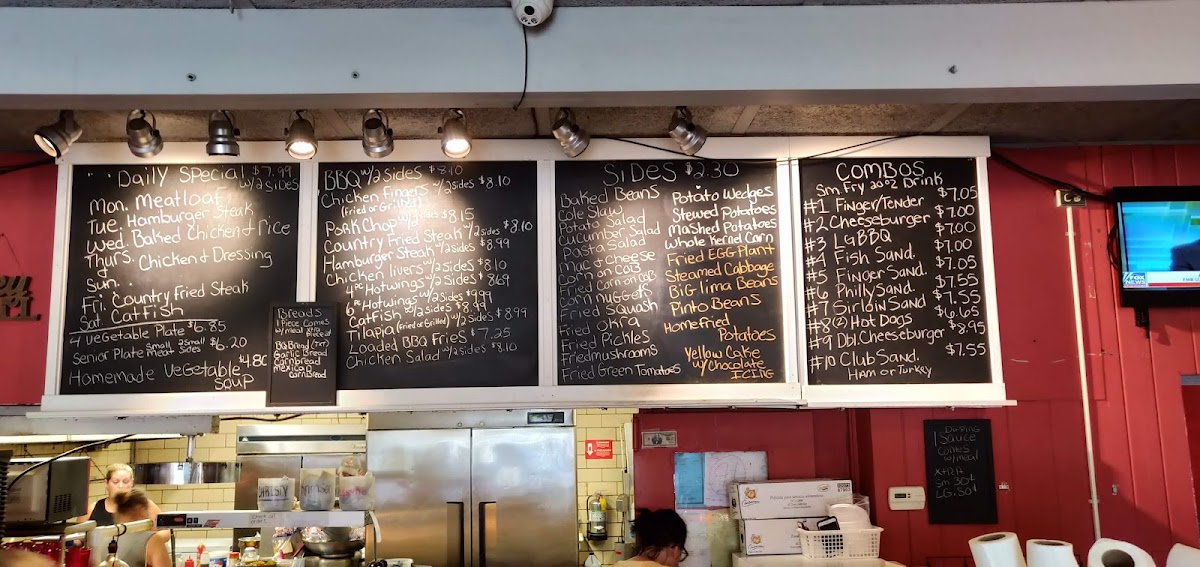 Daily Special $7.99
w/2 SIDES
Mon. Meatloaf
Tue. Hamburger Steak
Wed. Baked Chicken & Rice
Thurs.
& Chicken & Dressing
Sun.
Fri. Country Fried Steak
Sat. Catfish
4 Vegetable Plate $6.85
Senior Plate small meat 2small sides $6.20
Homemade Vegetable 4.80
soup
Breads
1 Piece Comes
w/meal
BQ Bread (TXT)
Garlic Bread
Cornbread
Mexican
cornbread
BBQ w/2 sides $8.10
Chicken Fingers w/2 sides $8.10
(Fried or Grilled)
Pork Chop w/2 sides $8.15
Country Fried Steak w/2 sides $8.10
Hamburger Steak w/2 sides $8.99
Chicken livers w/2 sides $8.10
4pc Hotwings w/2 sides $8.69
6pc Hotwings w/2 sides $9.99
Catfish w/2 sides $8.99
Tilapia (fried or Grilled) w/2 sides $8.99
Loaded BBQ Fries $7.25
Chicken Salad w/2 sides $8.10
SIDES $2.30
Baked Beans
Cole Slaw
Potato Salad
Cucumber Salad
Pasta Salad
Mac & Cheese
Corn on Cob
Fried Corn on Cob
Corn nuggets
Fried Squash
Fried Okra
Fried Pickles
Fried mushrooms
Fried Green Tomatoes
Potato Wedges
Stewed Potatoes
Mashed Potatoes
Whole Kernel Corn
Fried Egg Plant
Steamed Cabbage
Big lima Beans
Pinto Beans
Homefried
Potatoes
Yellow Cake
w/Chocolate
ICING
COMBOS
Sm Fry 20oz Drink
#1 Finger/Tender $7.05
#2 Cheeseburger $7.00
#3 LG BBQ $7.00
#4 Fish Sand. $7.00
#5 Finger Sand. $7.05
#6 Philly Sand. $7.55
#7 Sirloin Sand $7.55
#8 (2) Hot Dogs $6.65
#9 Dbl. Cheeseburger $8.95
#10 Club Sand. $7.55
Ham or Turkey
Dipping
1 Sauce
comes
w/meal
Sm 30¢
LG. 50¢
FOX
NEWS